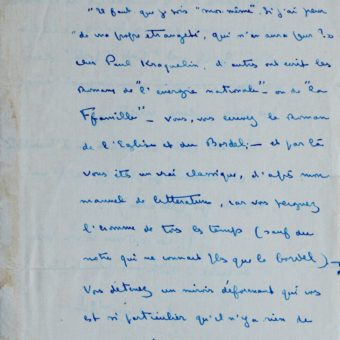 "Il faut que je sois "moi même". Si j'ai peur
de ma propre étrangeté, qui n'en aura peur?"
cher Paul d'autres ont écrit les
Romans de "l'énergie nationale" – ou de "la
Famille" – Vous, vous écrivez le Roman
de l'Eglise et du Bordel; – et par là
vous êtes un vrai classique, d'après mon
manuel de littérature, car vous peignez
l'homme de tous les temps (sauf du
notre qui ne connait plus que le bordel) –
Vous détenez un miroir déformant qui vous
est si particulier qu'il n'y a rien de